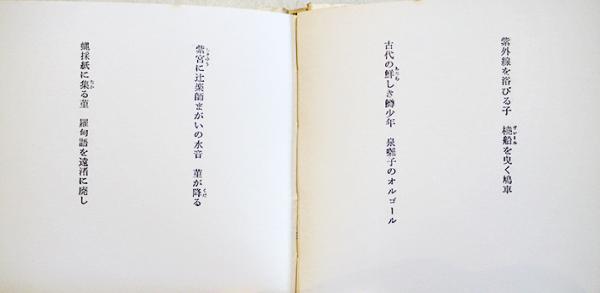 紫外線を浴びる子　船を曳く鳩車
古代の鮮しき鱒少年　泉囃子のオルゴール
紫宮に辻薬師まがいの水音　菫が降る
蝿採紙に集る菫　羅甸語を遠渚に廃し